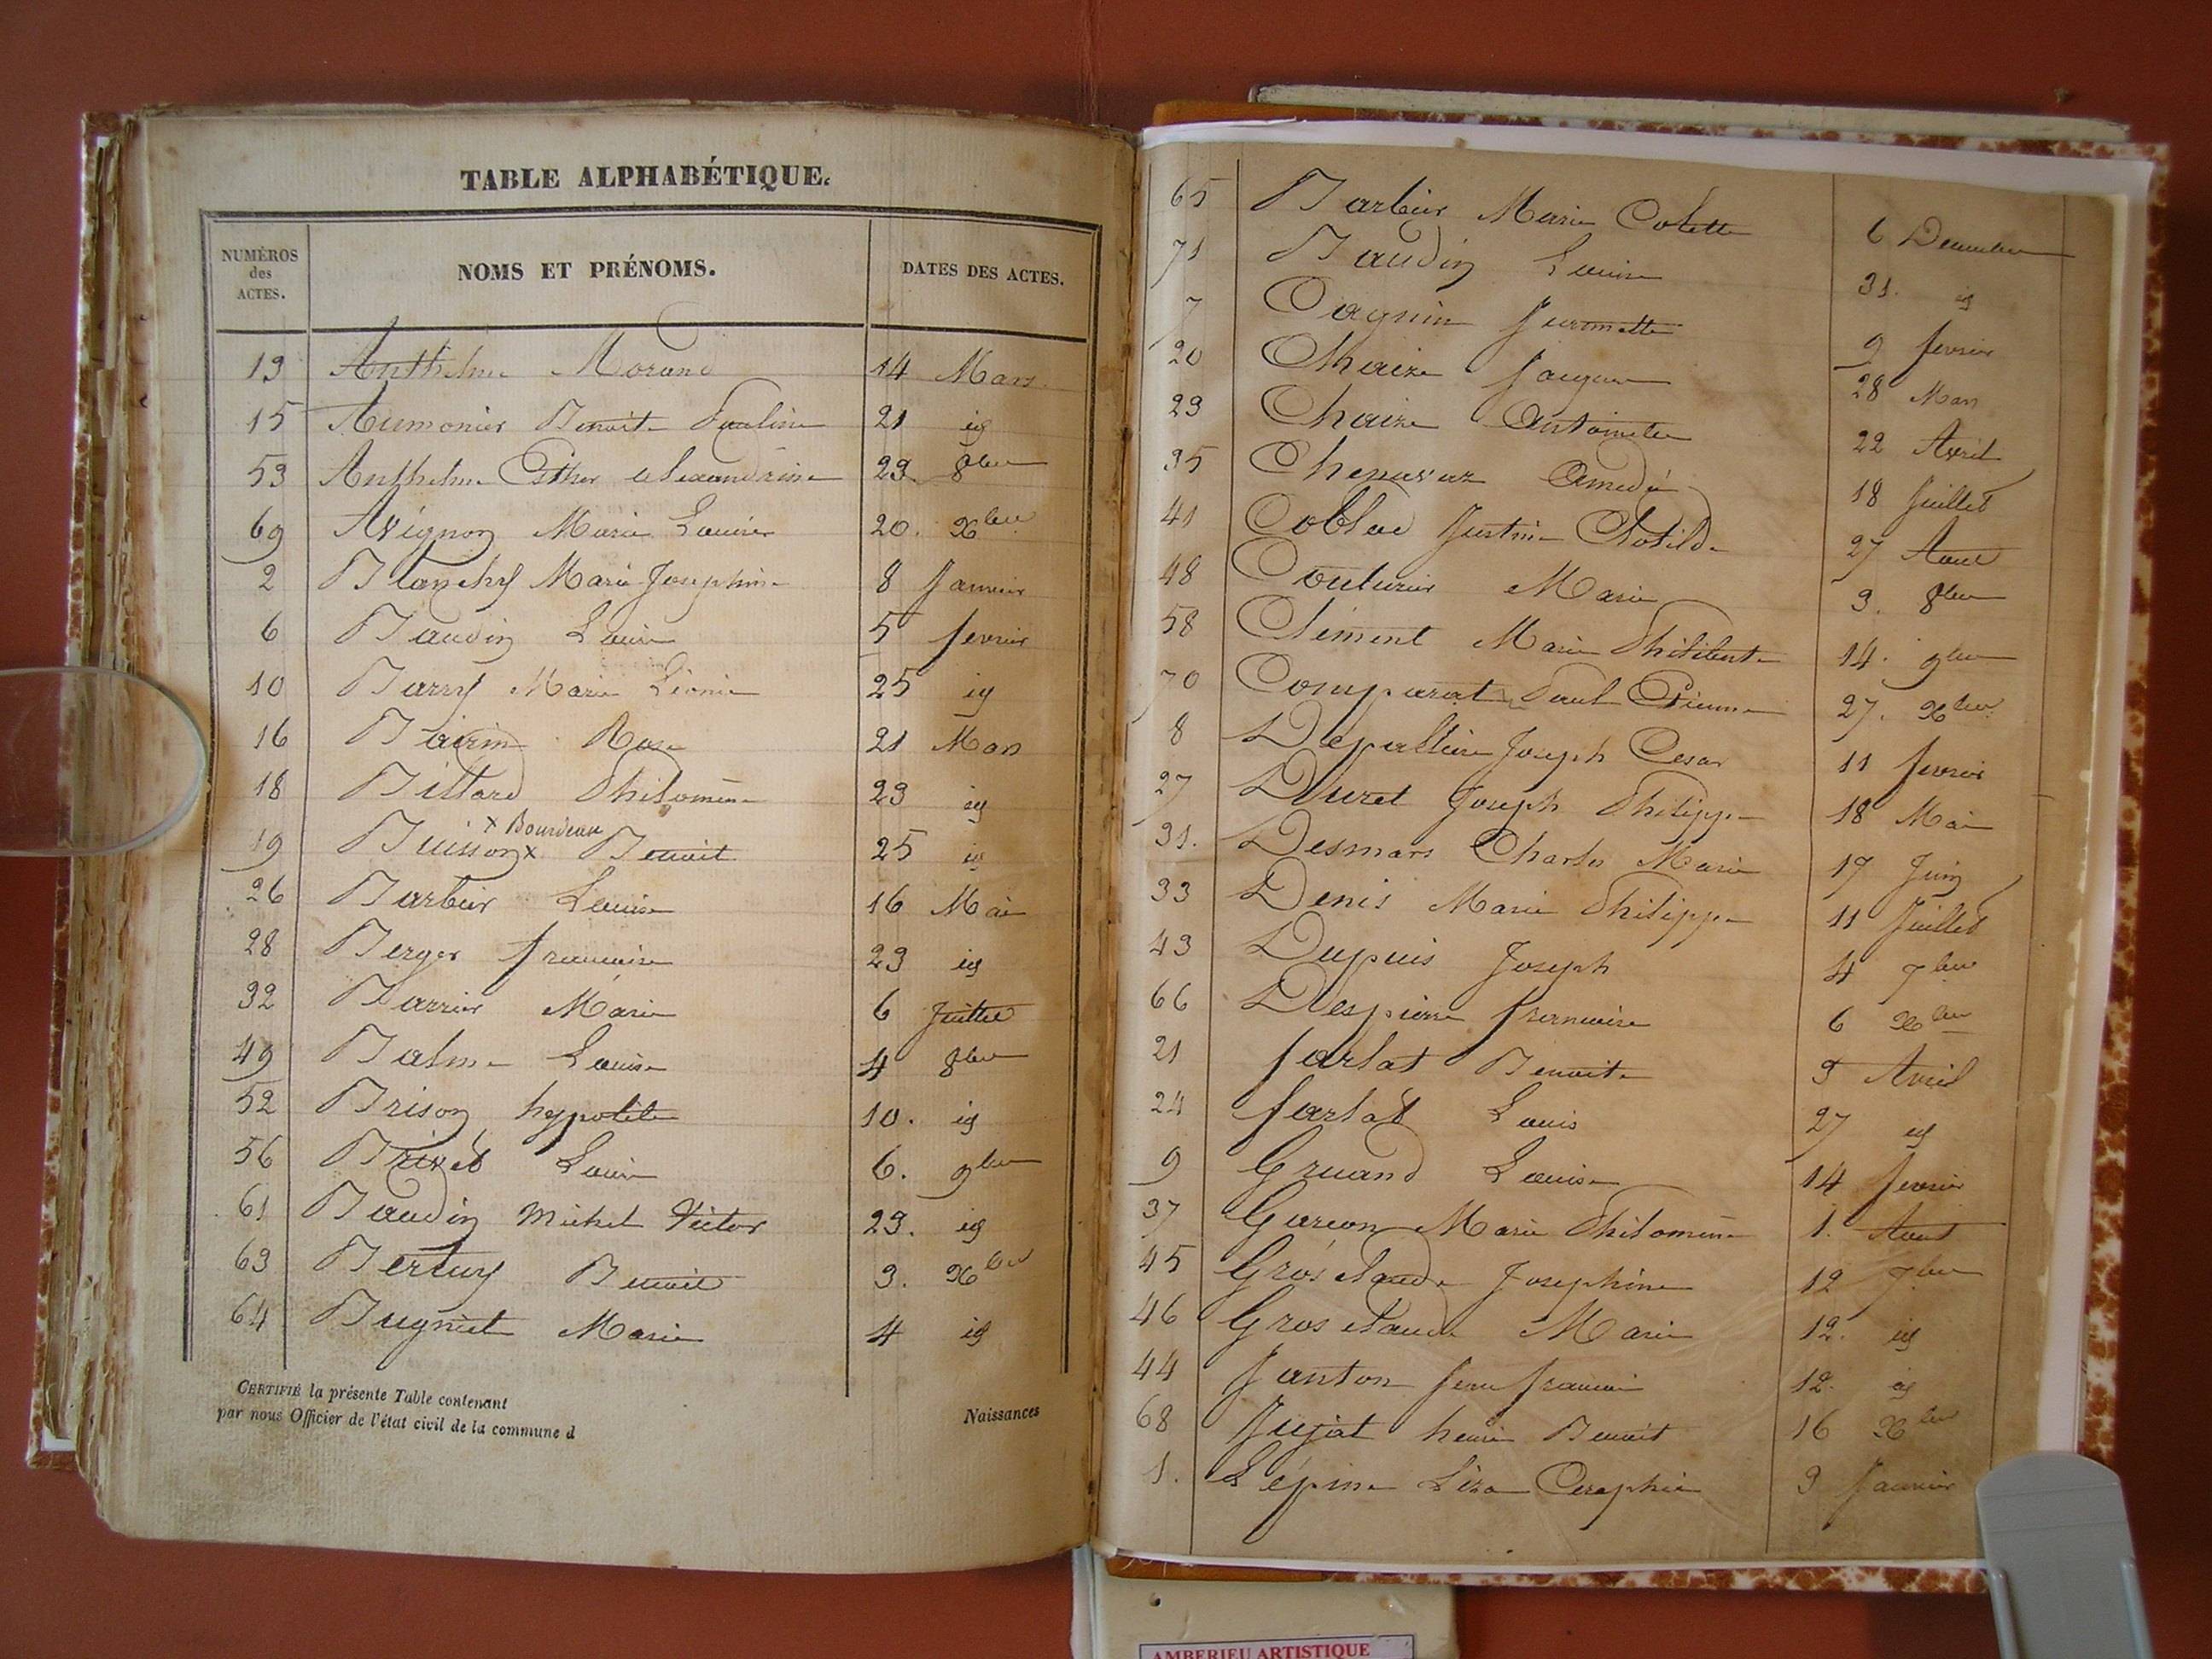 TABLE ALPHABÉTIQUE.
NUMÉROS des ACTES. NOMS ET PRÉNOMS. DATES DES ACTES.
13 Anthelme Morand 14 Mars
15 Aumonier Benoite Pauline 21 id
53 Anthelme Esther Alexandrine 23 8bre
69 Avignon Marie Louise 20. Xbre
2 Blanchy Marie Josephine 8 Janvier
6 Baudin Louise 5 fevrier
10 Barry Marie Léonie 25 id
16 Rose 21 Mars
18 Billard Philomène 23 id
x Bourdeau
19 Buisson x Benoit 25 id
26 Barbier Louise 16 Mai
28 Berger francoise 23 id
32 Barrier Marie 6 Juillet
49 Balme Louise 4 8bre
52 Brison hypolite 10. id
56 Brivet Louis 6. 9bre
61 Baudin Michel Victor 23. id
63 Bertuy Benoit 3. Xbre
64 Bugniet Marie 4 id
CERTIFIÉ la présente Table contenant
par nous Officier de l'état civil de la commune d
Naissances
65 Barbier Marie Colette 6 Decembre
71 Baudin Louise 31. id
7 Cagnin Jeannette 9 fevrier
20 Chaize Jacques 28 Mars
23 Chaize Antoinette 22 Avril
35 Chenavaz Amedé 18 Juillet
41 Coblad Justine Clotilde 27 Aout
48 Couturier Marie 3. 8bre
58 Clément Marie Philiberte 14. 9bre
70 Comparat Paul Etienne 27. Xbre
8 Depalliere Joseph Cesar 11 fevrier
27 Duret Joseph Philippe 18 Mai
31. Desmars Charles Marie 17 Juin
33 Denis Marie Philippe 11 Juillet
43 Dupuis Joseph 4 7bre
66 Despierre francoise 6 Xbre
21 farlat Benoite 3 Avril
24 farlat Louis 27 id
9 Gruand Louise 14 fevrier
37 Garcon Marie Philomène 1. Aout
45 Grosclaude Josephine 12 7bre
46 Grosclaude Marie 12. id
44 Janton Jean francois 12. id
68 Jujat henri Benoit 16 Xbre
1. Lépine Liza Ceraphie 3 Janvier
AMBERIEU ARTISTIQUE